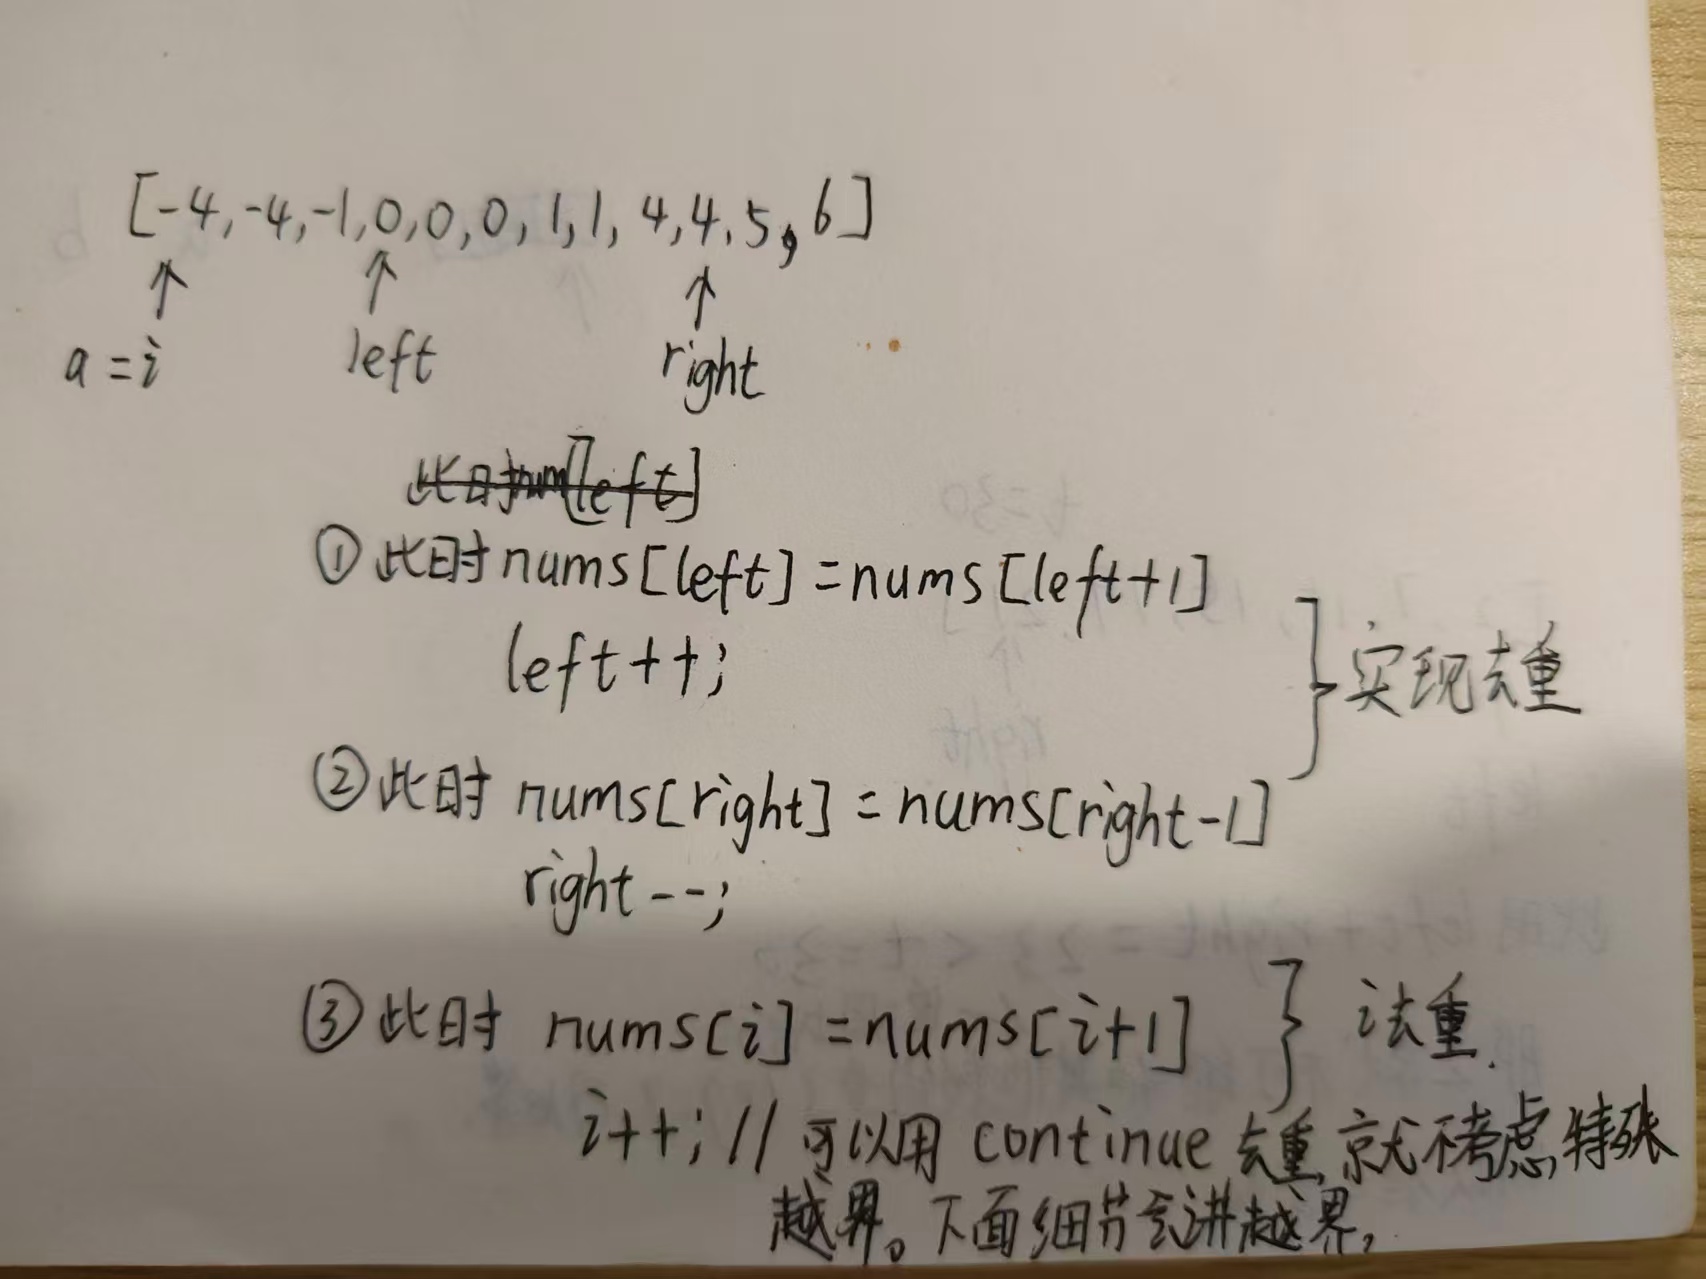 [-4,-4,-1,0,0,0,1,1,4,4,5,6]
a=i left right
此时num[left]
①此时nums[left]=nums[left+1]
left++;
实现去重
②此时 nums[right]=nums[right-1]
right--;
③此时 nums[i]=nums[i+1] i去重.
i++; // 可以用 continue 去重,就不考虑特殊
越界。下面细节会讲越界,